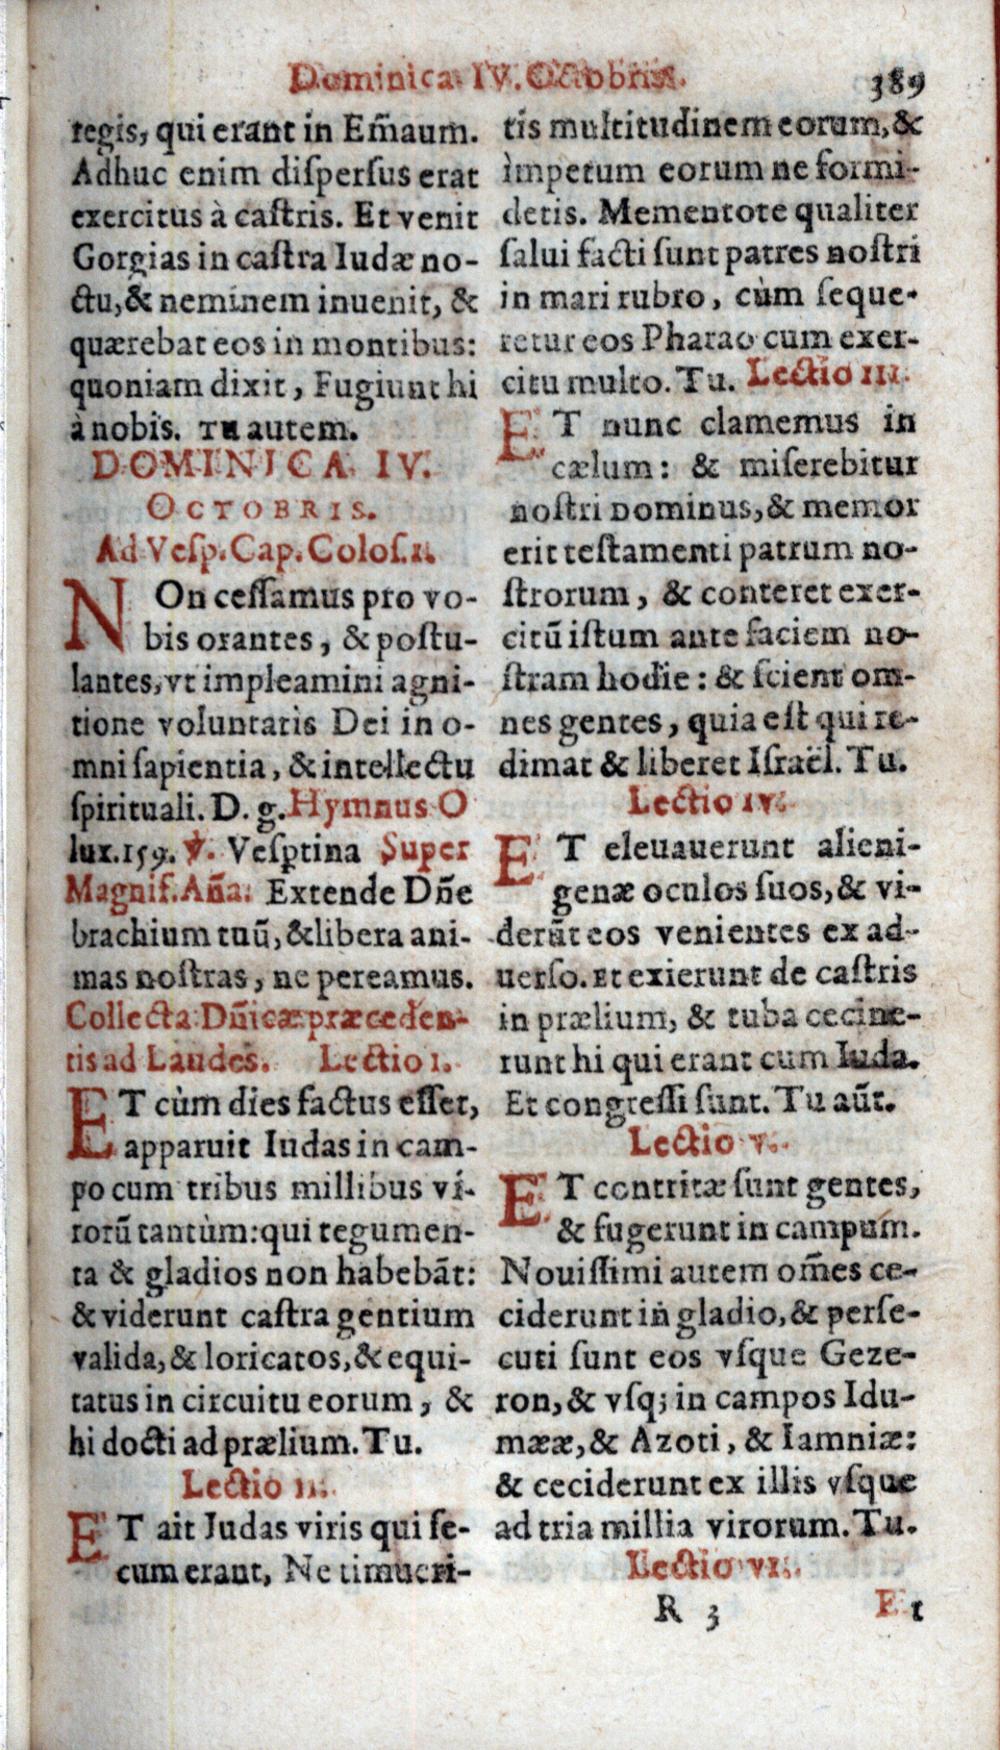 Dominica IV. Octobris. 389
regis, qui erant in Em̃aum.
Adhuc enim diſperſus erat
exercitus à caſtris. Et venit
Gorgias in caſtra Iudæ no-
ctu, & neminem inuenit, &
quærebat eos in montibus:
quoniam dixit, Fugiunt hi
à nobis. Tu autem.
DOMINICA IV.
OCTOBRIS.
Ad Veſp. Cap. Coloſ. 1.
NOn ceſſamus pro vo-
bis orantes, & poſtu-
lantes, vt impleamini agni-
tione voluntatis Dei in o-
mni ſapientia, & intellectu
ſpirituali. D. g. Hymnus O
lux. 159. ℣. Veſptina Super
Magnif. Aña. Extende Dñe
brachium tuũ, & libera ani-
mas noſtras, ne pereamus.
Collecta Dñicæ præceden-
tis ad Laudes. Lectio I.
ET cùm dies factus eſſet,
apparuit Iudas in cam-
po cum tribus millibus vi-
rorũ tantùm: qui tegumen-
ta & gladios non habebãt:
& viderunt caſtra gentium
valida, & loricatos, & equi-
tatus in circuitu eorum, &
hi docti ad prælium. Tu.
Lectio II.
ET ait Iudas viris qui ſe-
cum erant, Ne timueri-
tis multitudinem eorum, &
impetum eorum ne formi-
detis. Mementote qualiter
ſalui facti ſunt patres noſtri
in mari rubro, cùm ſeque-
retur eos Pharao cum exer-
citu multo. Tu. Lectio III.
ET nunc clamemus in
cælum: & miſerebitur
noſtri Dominus, & memor
erit teſtamenti patrum no-
ſtrorum, & conteret exer-
citũ iſtum ante faciem no-
ſtram hodie: & ſcient om-
nes gentes, quia eſt qui re-
dimat & liberet Iſraël. Tu.
Lectio IV.
ET eleuauerunt alieni-
genæ oculos ſuos, & vi-
derũt eos venientes ex ad-
uerſo. Et exierunt de caſtris
in prælium, & tuba cecine-
runt hi qui erant cum Iuda.
Et congreſſi ſunt. Tu aũt.
Lectio V.
ET contritæ ſunt gentes,
& fugerunt in campum.
Nouiſſimi autem om̃es ce-
ciderunt in gladio, & perſe-
cuti ſunt eos vſque Geze-
ron, & vſq; in campos Idu-
mææ, & Azoti, & Iamniæ:
& ceciderunt ex illis vſque
ad tria millia virorum. Tu.
Lectio VI.
R 3 Et